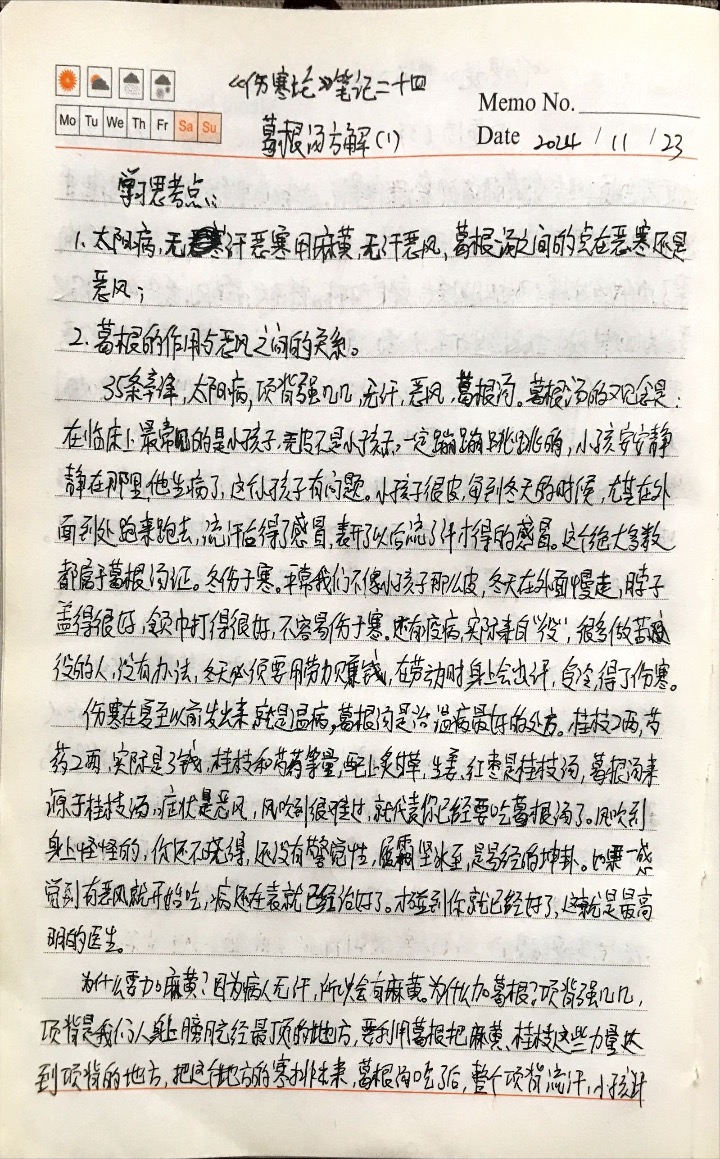 《伤寒论》笔记二十四
Memo No.
Mo Tu We Th Fr Sa Su
葛根汤方解(1)
Date 2024 / 11 / 23
学习思考点：
1. 太阳病,无汗恶寒用麻黄,无汗恶风,葛根汤之间的点在恶寒还是
恶风；
2. 葛根的作用与恶风之间的关系。
35条辛绛,太阳病,项背强几几,无汗,恶风,葛根汤。葛根汤的观念是：
在临床上最常见的是小孩子,皮不是小孩子,一定蹦蹦跳跳的,小孩安安静
静在那里他生病了,这个小孩子有问题。小孩子很皮,每到冬天的时候,尤其在外
面到处跑来跑去,流汗后得了感冒,表开了以后流了汗才得的感冒。这个绝大多数
都属于葛根汤证。冬伤于寒。平常我们不像小孩子那么皮,冬天在外面慢走,脖子
盖得很好,领巾打得很好,不容易伤于寒。还有疫病,实际来自“役”,很多做苦
役的人,没有办法,冬天必须要用劳力赚钱,在劳动时身上会出汗,受冷,得了伤寒。
伤寒在夏至以前发出来,就是温病,葛根汤是治温病最好的处方。桂枝2两,芍
药2两,实际是3钱,桂枝和芍药等量,配上炙甘草,生姜,红枣是桂枝汤,葛根汤来
源于桂枝汤。症状是恶风,风吹到很难过,就代表你已经要吃葛根汤了。风吹到
身上怪怪的,你还不晓得,还没有警觉性,履霜坚冰至,是易经的坤卦。如果一感
觉到有恶风就开始吃,病还在表就已经治好了。才碰到你就已经好了,这就是最高
明的医生。
为什么要加麻黄？因为病人无汗,所以会有麻黄。为什么加葛根？项背强几几,
项背是我们人身上膀胱经最顶的地方,要利用葛根把麻黄、桂枝这些力量达
到项背的地方,把这个地方的寒排出来,葛根汤吃了后,整个项背流汗,小孩汗